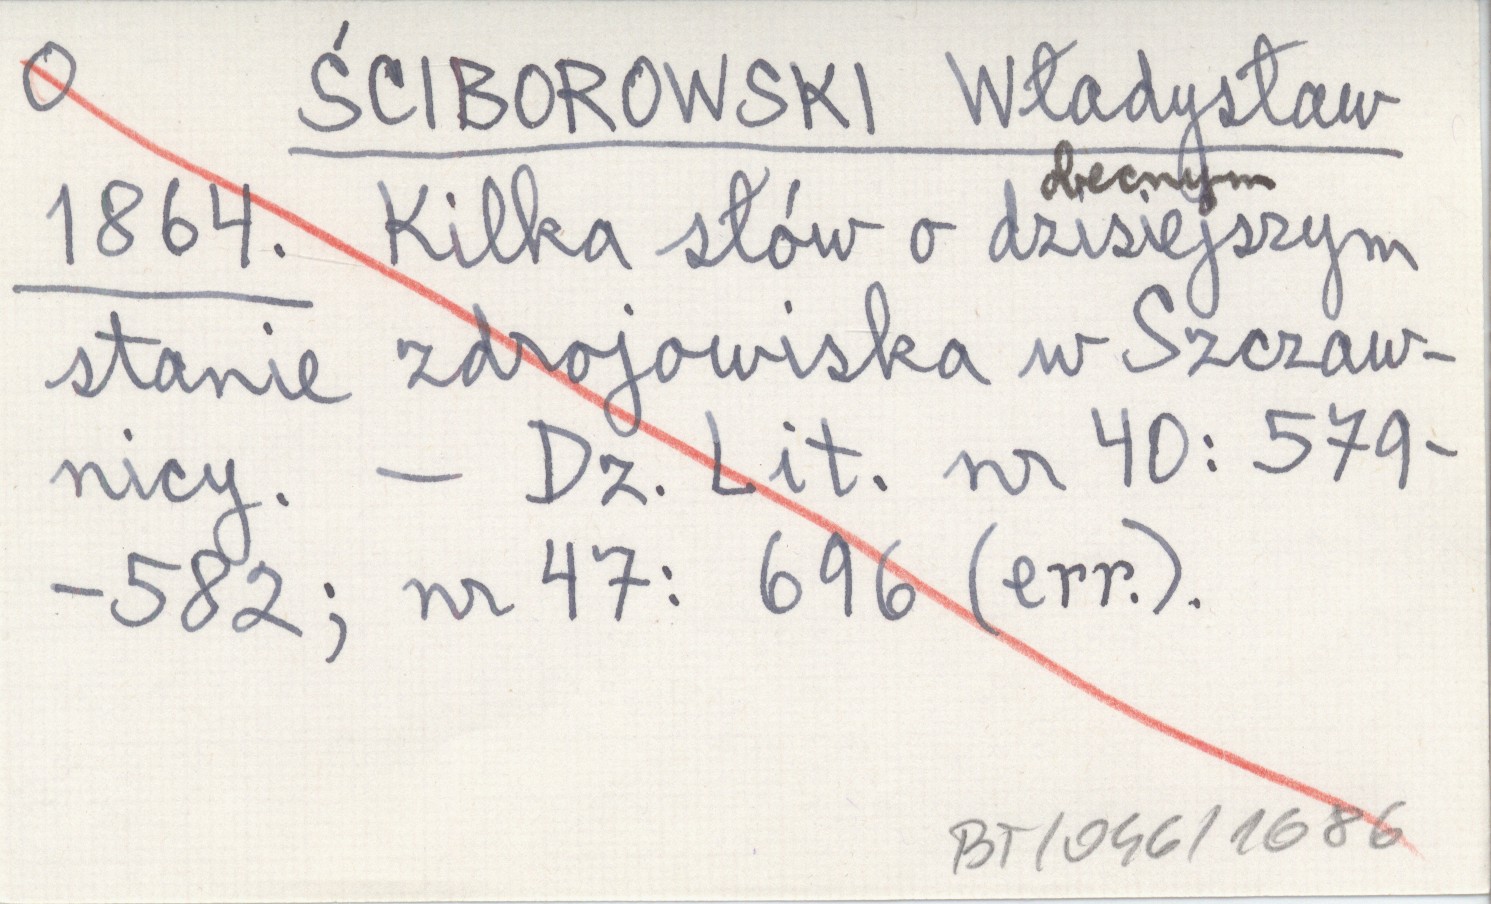 O ŚCIBOROWSKI Władysław
obecnym
1864. Kilka słów o dzisiejszym
stanie zdrojowiska w Szczaw-
nicy. — Dz. Lit. nr 40: 579-
-582; nr 47: 696 (err.).
BT/046/1686